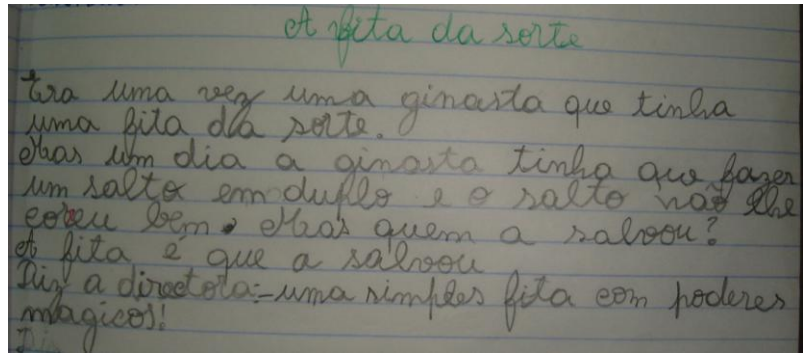 A fita da sorte
Era uma vez uma ginasta que tinha
uma fita da sorte.
Mas um dia a ginasta tinha que fazer
um salto em duplo e o salto não lhe
coreu bem. Mas quem a salvou?
A fita é que a salvou
Diz a directora:-uma simples fita com poderes
magicos!